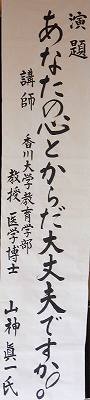 演題
あなたの心とからだ大丈夫ですか。
講師
香川大学教育学部
教授 医学博士
山神眞一氏